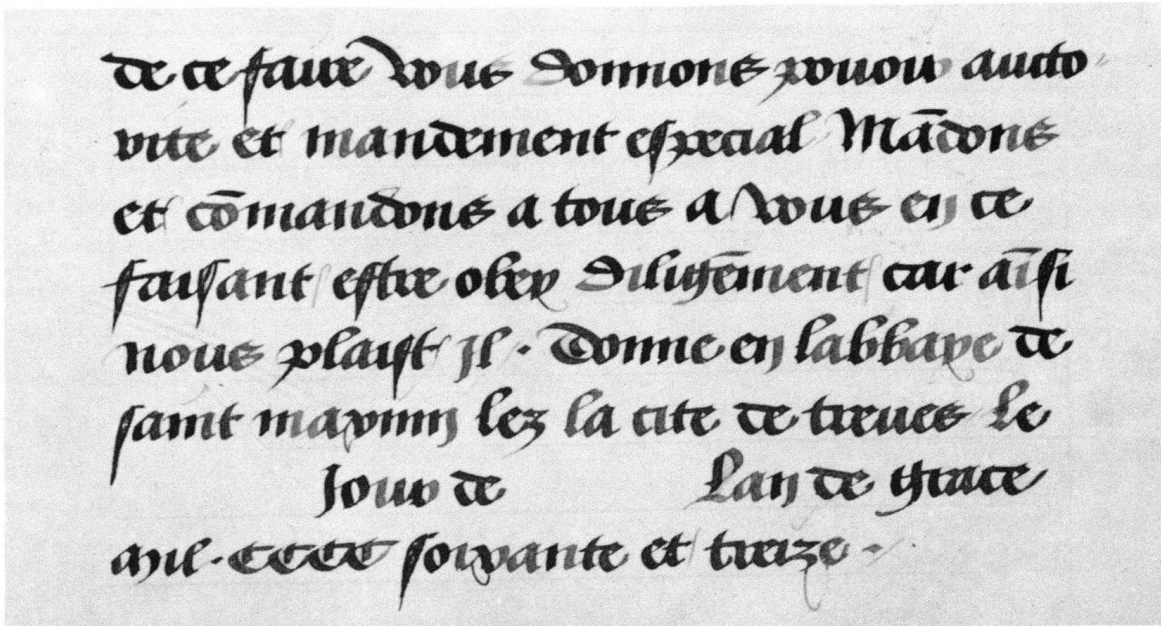 de ce faire vous donnons pouoir aucto
rite et mandement especial Mādons
et cōmandons a tous a vous en ce
faisant estre obey diligēment car aīsi
nous plaist Jl . Donne en labbaye de
saint maximin lez la cite de treues Le
Jour de Lan de grace
mil . CCCC soixante et treize .